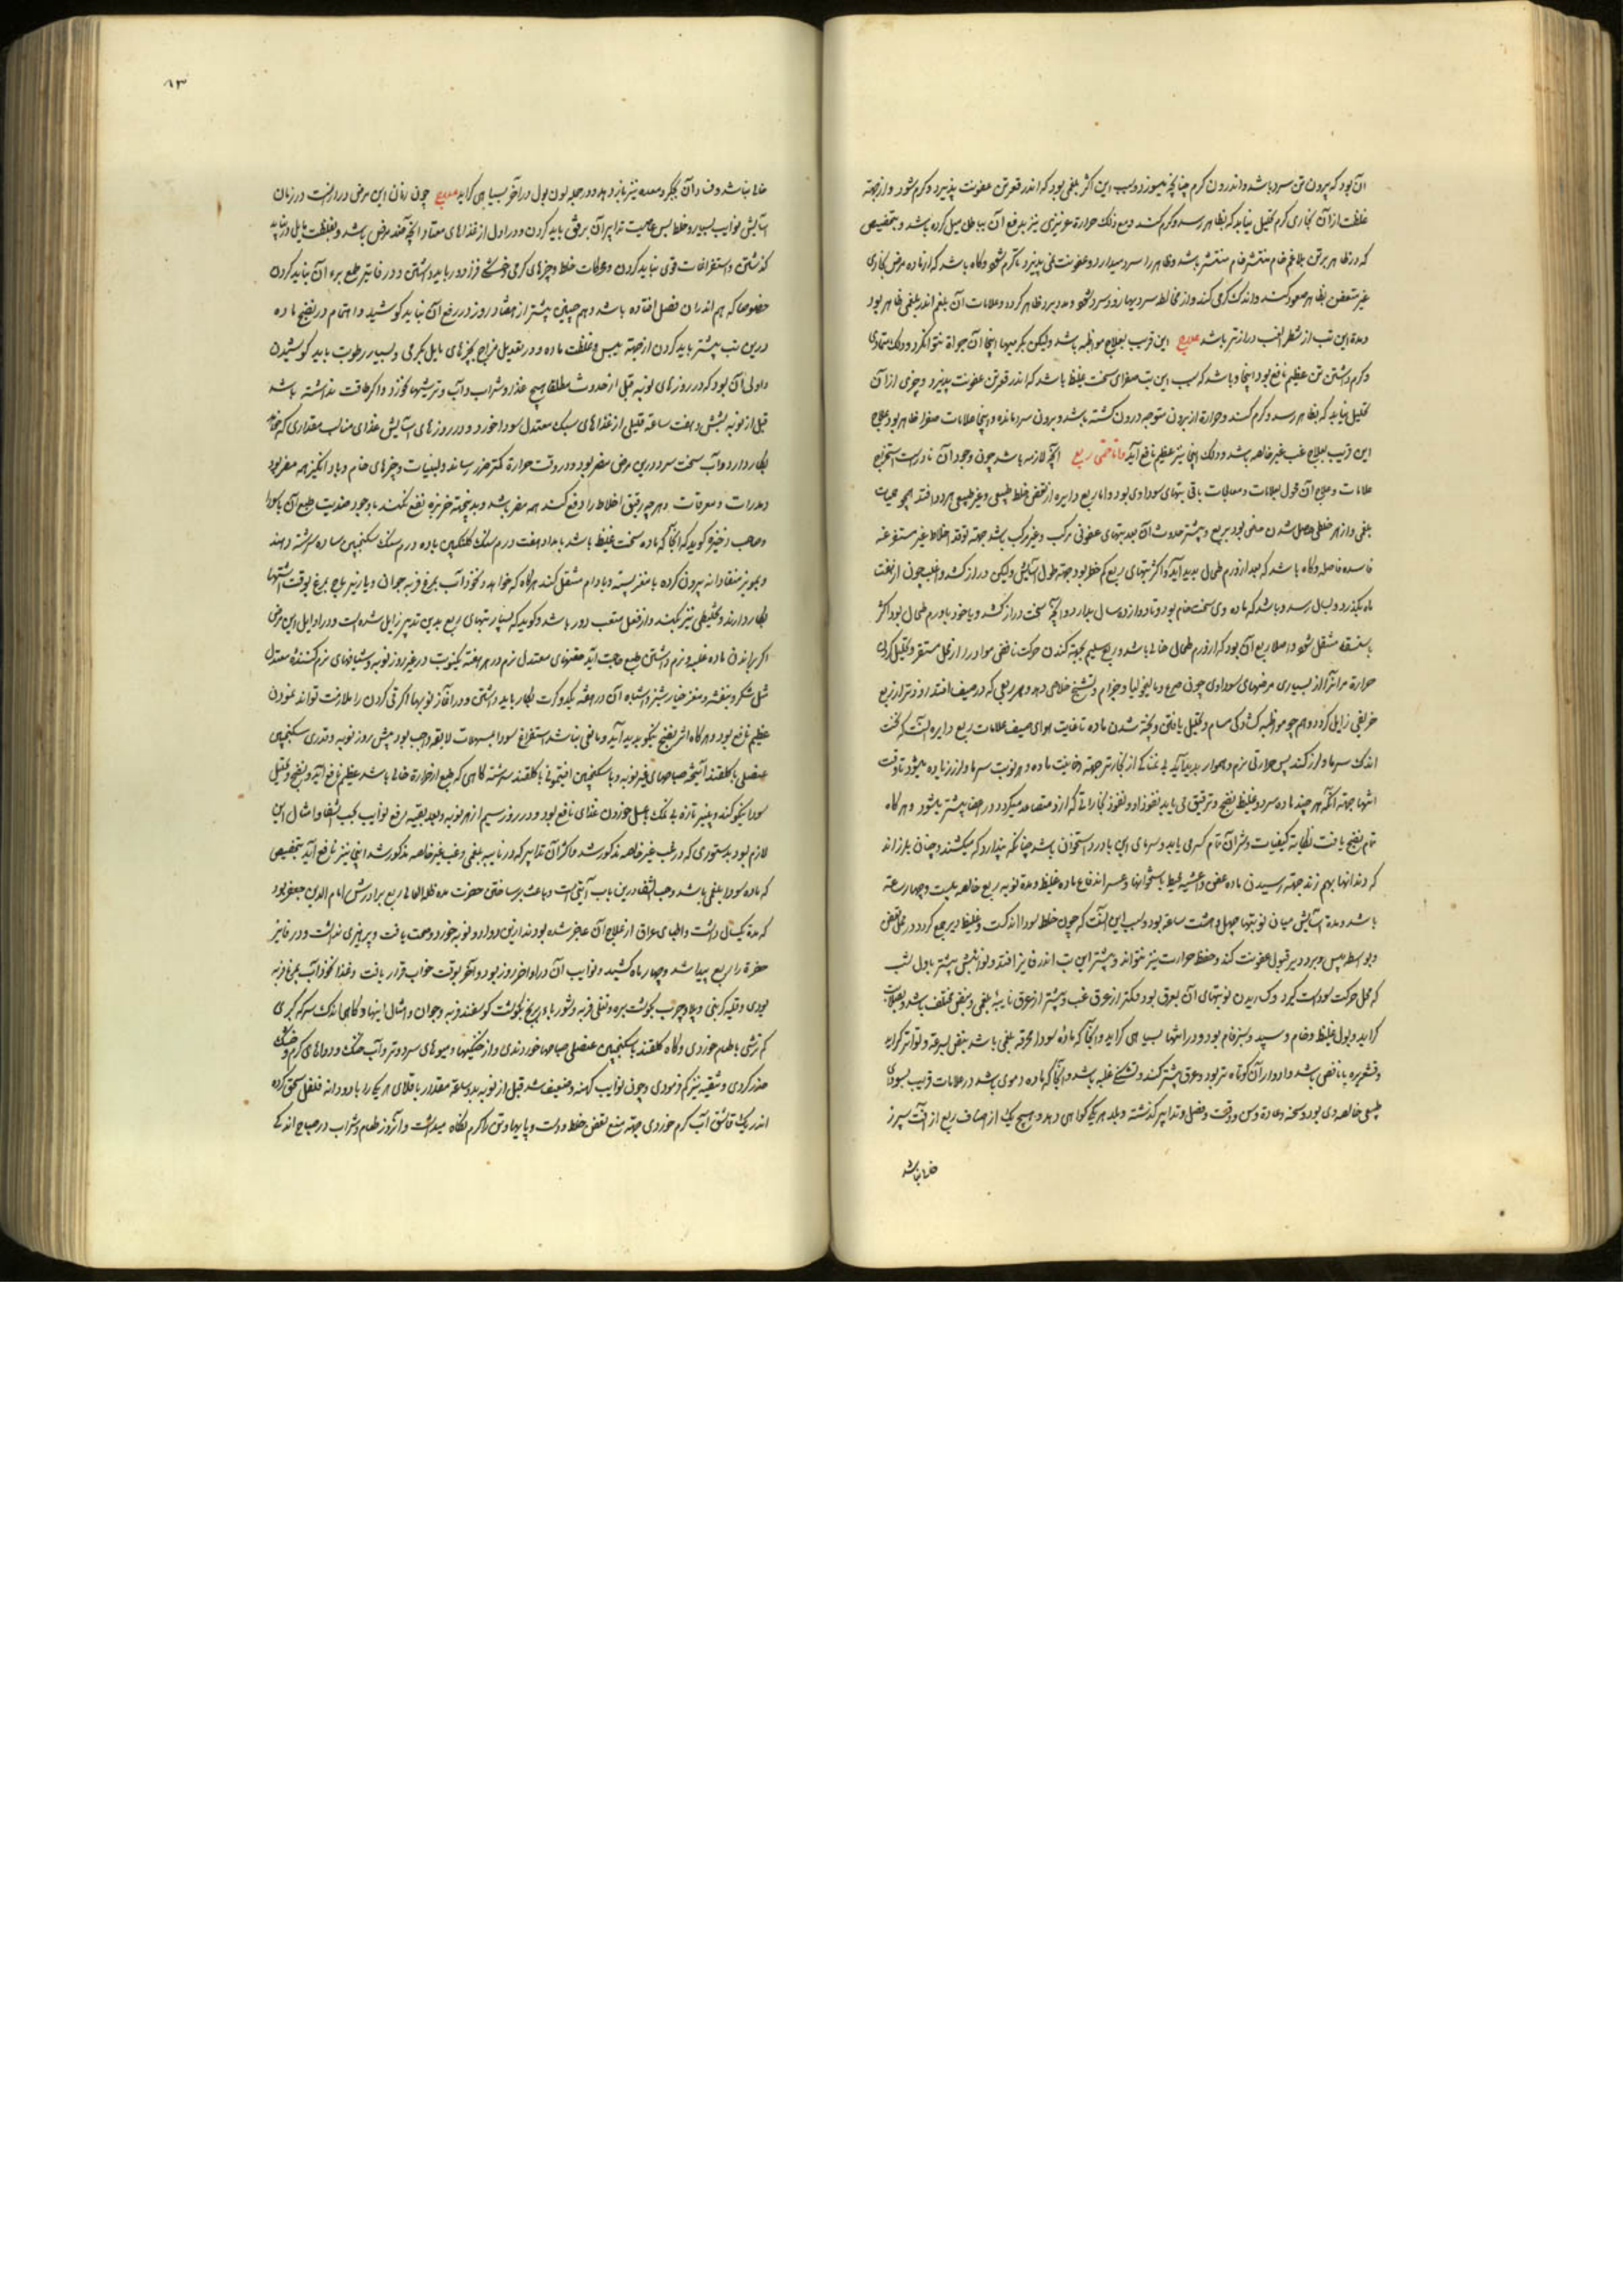 آن بود که بیرون تن سرد باشد و اندرون گرم چنانچه میسوزد و سبب این اکثر بلغمی بود که اندر قعر تن عفونت پذیرد و گرم شود و از جهته
غلظت از آن بخاری گرم تحلیل نیابد که بظاهر رسد و گرم کند و مع ذلک حرارة غریزی نیز بدفع آن بباطن میل کرده باشد و بتخصیص
که در ظاهر بر تن بلاغم خام منتشر باشد و ظاهر را سرد میدارد و عفونت نمی پذیرد تا گرم شود و گاه باشد که از ماده مرض بخاری
غیر متعفن بظاهر صعود کند و اندک گرمی کند و از مخالطه سردیها زود سرد شود و علامات آن بلغم اندر بلغمی ظاهر بود
و مدة این تب از شطر الغب درازتر باشد علاج این قریب بعلاج مواظبه باشد ولیکن
و گرم داشتن تن عظیم نافع بود اینجا و باشد که سبب این تب صفرای سخت غلیظ باشد که اندر قعر تن عفونت پذیرد و چیزی از آن
تحلیل نیابد که بظاهر رسد و گرم کند و حرارة از بیرون متوجه درون گشته باشد و بیرون سرد مانده و اینجا علامات صفرا ظاهر بود و علاج
این قریب بعلاج غب غیر خالصه باشد و دلک اینجا نیز عظیم نافع آید و اما حمی ربع آنچه لازمه باشد چون وجود آن نادر است
علامات و علاج آن محول بعلامات و معالجات باقی تبهای سوداوی بود و اما ربع دایره از تعفن خلط طبیعی و غیر طبیعی هر دو افتد همچو حمیات
بلغمی و از هر خلطی حاصل شدن ممکن بود بربع و بیشتر حدوث آن بعد تبهای عفونی مرکب و غیر مرکب باشد جهته توقد اخلاط غیر مستفرغه
فاسده فاضله و گاه باشد که بعد از ورم طحال پدید آید و اکثر تبهای ربع کم خطر بود جهته طول آسایش ولیکن دراز کشد و اغلب چون از هفت
ماه بگذرد و بسال رسد و باشد که ماده وی سخت خام بود و تا دوازده سال بدارد و آنچه سخت دراز کشد و یا خود با ورم طحال بود اکثر
باستسقا منتقل شود و اصلا ربع آن بود که از ورم طحال خالی باشد و ربع سلیم بجهته کندن حرکت نافض مواد را از محل مستقر و تحلیل کردن
حرارة مر آنرا از بسیاری مرضهای سوداوی چون صرع و مالیخولیا و جذام و تشنج خلاصی دهد و هر ربعی که در صیف افتد زودتر از ربع
خریفی زایل گردد و هم چو مواظبه گشادگی مسام و تحلیل یافتن و پخته شدن ماده تا غایت هوای صیف علامات ربع دایره آنست که نخست
اندک سرما و لرز کند پس حرارتی نرم و هموار پدید آید بی نمناکی از بخار تر جهته دخانیت ماده و هر نوبت سرما و لرز زیاده میشود تا وقت
انتها جهته آنکه هر چند ماده سرد و غلیظ نضج و ترقیق می یابد نفوذ او و نفوذ بخاراتی که ازو متصاعد میگردد در اعضا بیشتر میشود و هر گاه
تمام نضج یافت نکایة کیفیات و شر آن تمام کمی یابد و سرمای این با درد استخوان باشد چنانکه پندارد که میشکنند و چنان بلرزاند
که دندانها بهم زند جهته رسیدن ماده عفن و اغشیه محیط باستخوانها و عسر اندفاع ماده غلیظ و مدة نوبه ربع خالصه بیست و چهار ساعته
باشد و مدة آسایش میان نوبتها چهل و هشت ساعه بود و سبب این آنست که چون خلط سودا اندک است و غلیظ دیر جمع گردد در محل تعفن
و بواسطه یبس و برد دیر قبول عفونت کند و حفظ حرارت نیز نتواند و بیشتر این تب اندر فایز افتد و نوائبش بیشتر باول شب
که محل حرکت سوداست گیرد و گساریدن نوبتهای آن بعرق بود و کمتر از عرق غب و بیشتر از عرق نایبه بلغمی و نبض مختلف باشد و بصلابت
گراید و بول غلیظ و خام و سپید و سبز فام بود و در انتها بسیاهی گراید و آنجا که ماده سودا محرقه بلغمی باشد نبض بسرعة و تواتر گراید
و قشعریره با نافض باشد و ادوار آن کوتاه تر بود و عرق بیشتر کند و تشنگی غلبه باشد و آنجا که ماده دموی باشد در علامات قریب بسوداوی
طبیعی خالصه دی بود و سحنه و عادة و سن و وقت و فصل و تدابیر گذشته و بلد هر یک گواهی دهد و هیچ یک از اصناف ربع از آفت سپرز
خالی نباشد
٨٣
خالی نباشد و فساد آن بجگر و معده نیز باز دهد و در جمله لون بول در آخر بسیاهی گراید علاج چون زمان این مرض دراز است در زمان
آسایش نوایب بسیار و خلط بس عاصیست تدابیر آن برفق باید کردن و در اول از غذاهای معتاد آنچه ضد مرض باشد و بغلظت مایل
گذشتن و استفراغات قوی نباید کردن و محرکات خلط و چیزهای گرمی و خشکی فزا دور باید داشتن و در فایتر طمع برء آن نباید کردن
خصوصا که هم اندران فصل افتاده باشد و هم چنین بیشتر از هفتاد روز در رفع آن نباید کوشید و اهتمام در نضج ماده
درین تب بیشتر باید کردن از جهته یبس و غلظت ماده و در تعدیل مزاج بچیزهای مایل بگرمی و بسیار رطوبت باید کوشیدن
و اولی آن بود که در روزهای نوبه قبل از حدوث مطلقا هیچ غذا و شراب و آب و ترشیها نخورد و اگر طاقت نداشته باشد
قبل از نوبه بشش و هفت ساعة قلیلی از غذاهای سبک معتدل سودا خورد و در روزهای آسایش غذای مناسب مقداری که خواهد
بکار دارد و آب سخت سرد درین مرض مضر بود و در وقت حرارة کمتر ضرر رساند و لبنیات و چیزهای خام و باد انگیز همه مضر بود
و مدرات و معرقات و هر چه رقیق اخلاط را دفع کند همه مضر باشد و بد پخته خربزه نفع نکند با وجود ضدیت طبع آن با سودا
و صاحب ذخیره گوید که آنجا که ماده سخت غلیظ باشد بامداد هفت درم سنگ گلنگبین با ده درم سنگ سکنجبین ساده سرشته دهند
و مویز منقا دانه بیرون کرده با مغز پسته و بادام منتقل کند هر گاه که خواهد و نخود آب بمرغ فربه جوان و یا زیره باج بمرغ بوقت اشتها
بکار دارند و تخلیطی نیز نکند و از فعل متعب دور باشد و گوید که بسیار تبهای ربع بدین تدبیر زایل شده است و در اوایل این مرض
اگر براندن ماده غلبه و نرم داشتن طبع حاجت آید حقنهای معتدل نرم در هر هفته یک نوبت در غیر روز نوبه و شیافهای نرم کننده معتدل
مثل شکر و بنفشه و مغز خیار شنبر و اشباه آن در هفته یک دو کرت بکار باید داشتن و در آغاز نوبها اگر قی کردن را ملازمت تواند نمودن
عظیم نافع بود و هر گاه اثر نضج نیکو پدید آید و مانعی نباشد استفراغ سودا بمسهلات لایقه واجب بود پیش روز نوبه و قدری سکنجبین
عنصلی با گلقند آمیخته صباحهای غیر نوبه و یا سکنجبین افتیمونی با گلقند سرشته گاهی که طبع از حرارة خالی باشد عظیم نافع آید و نضج و تحلیل
سودا نیکو کند و پنیر تازه بی نمک بعسل خوردن غذای نافع بود و در روز سیم از هر نوبه و بعد بقیه رفع نوایب بحب الشفا و امثال این
لازم بود بدستوری که در غب غیر خالصه مذکور شد و اکثر آن تدابیر که در نایبه بلغمی و غب غیر خالصه مذکور شد اینجا نیز نافع آید بتخصیص
که ماده سودا بلغمی باشد و حب الشفا درین باب آیتی است و باعث بر ساختن حضرت مد ظله العالی ربع برادرش امام الدین جعفر بود
که مدة یکسال داشت و اطبای عراق از علاج آن عاجز شده بودند ازین دوا دو نوبه خورد و صحت یافت و پرهیزی نداشت و در فایز
حضرة را ربع پیدا شد و چهار ماه کشید و نوایب آن در اواخر روز بود و آخر بوقت خواب قرار یافت و غذا نخود آب بمرغ فربه
بودی و قلیه گزینی و پلاو چرب بگوشت بره و تغلی فربه و شوربا و برنج بگوشت گوسفند فربه و جوان و امثال اینها و گاهی اندک سرکه کبری
کم ترشی با طعام خوردی و گاه گلقند با سکنجبین عنصلی صباحها خوردندی و از خشکیها و میوهای سرد و تر و آب خنک و دواهای گرم و خشک
حذر کردی و تنقیه نیز کم فرمودی و چون نوایب کهنه و ضعیف شد قبل از نوبه بدو ساعة مقدار باقلای هر یک را با دو دانه فلفل سحق کرده
اندر یک قاشق آب گرم خوردی جهته منع تعفن خلط و دست و پایها و تن را گرم نگاه میداشت و آنروز طعام و شراب در صباح اندکی